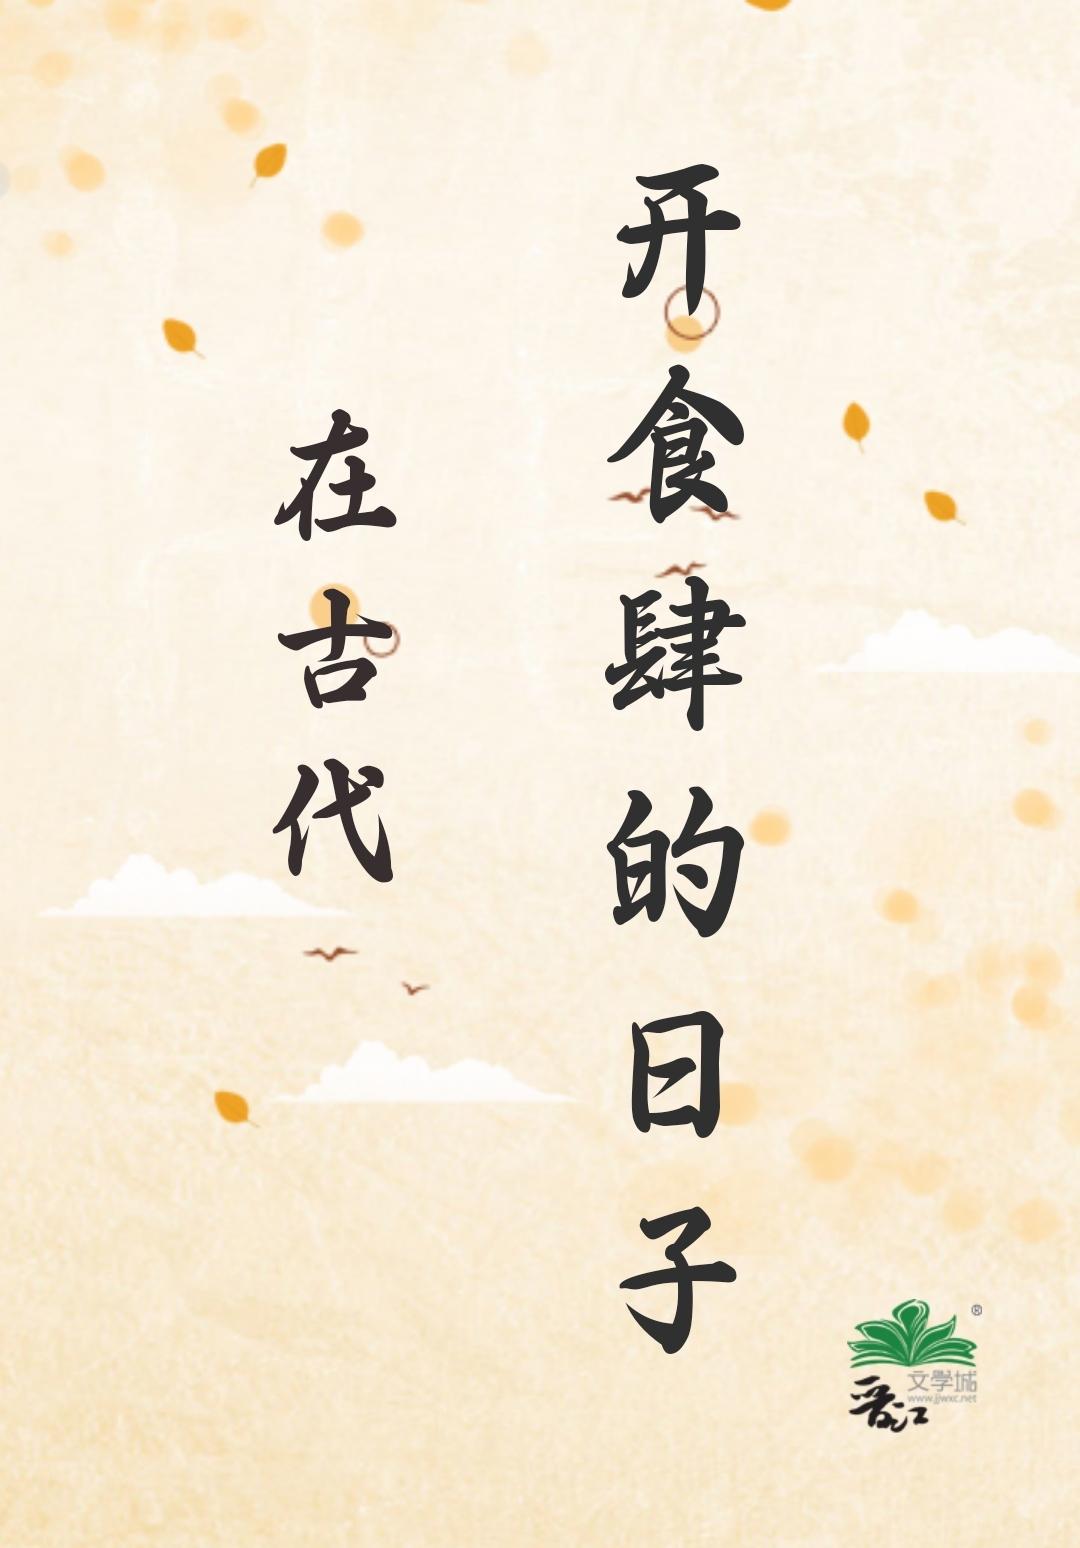 开食肆的日子
在古代
®
文学城
www.jjwxc.net
晋江